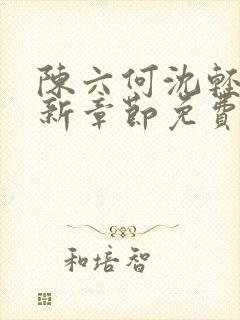 陳六何沈輕
新章節免費
和培智